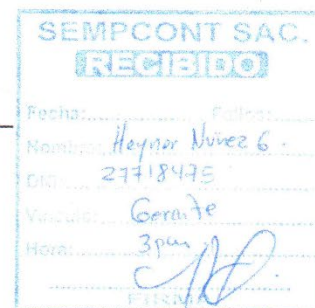 SEMPCONT SAC.
RECIBIDO
Fecha: Folios:
Nombre: Heynor Nuñez G.
DNI: 27718475
Vínculo: Gerante
Hora: 3pm
FIRMA